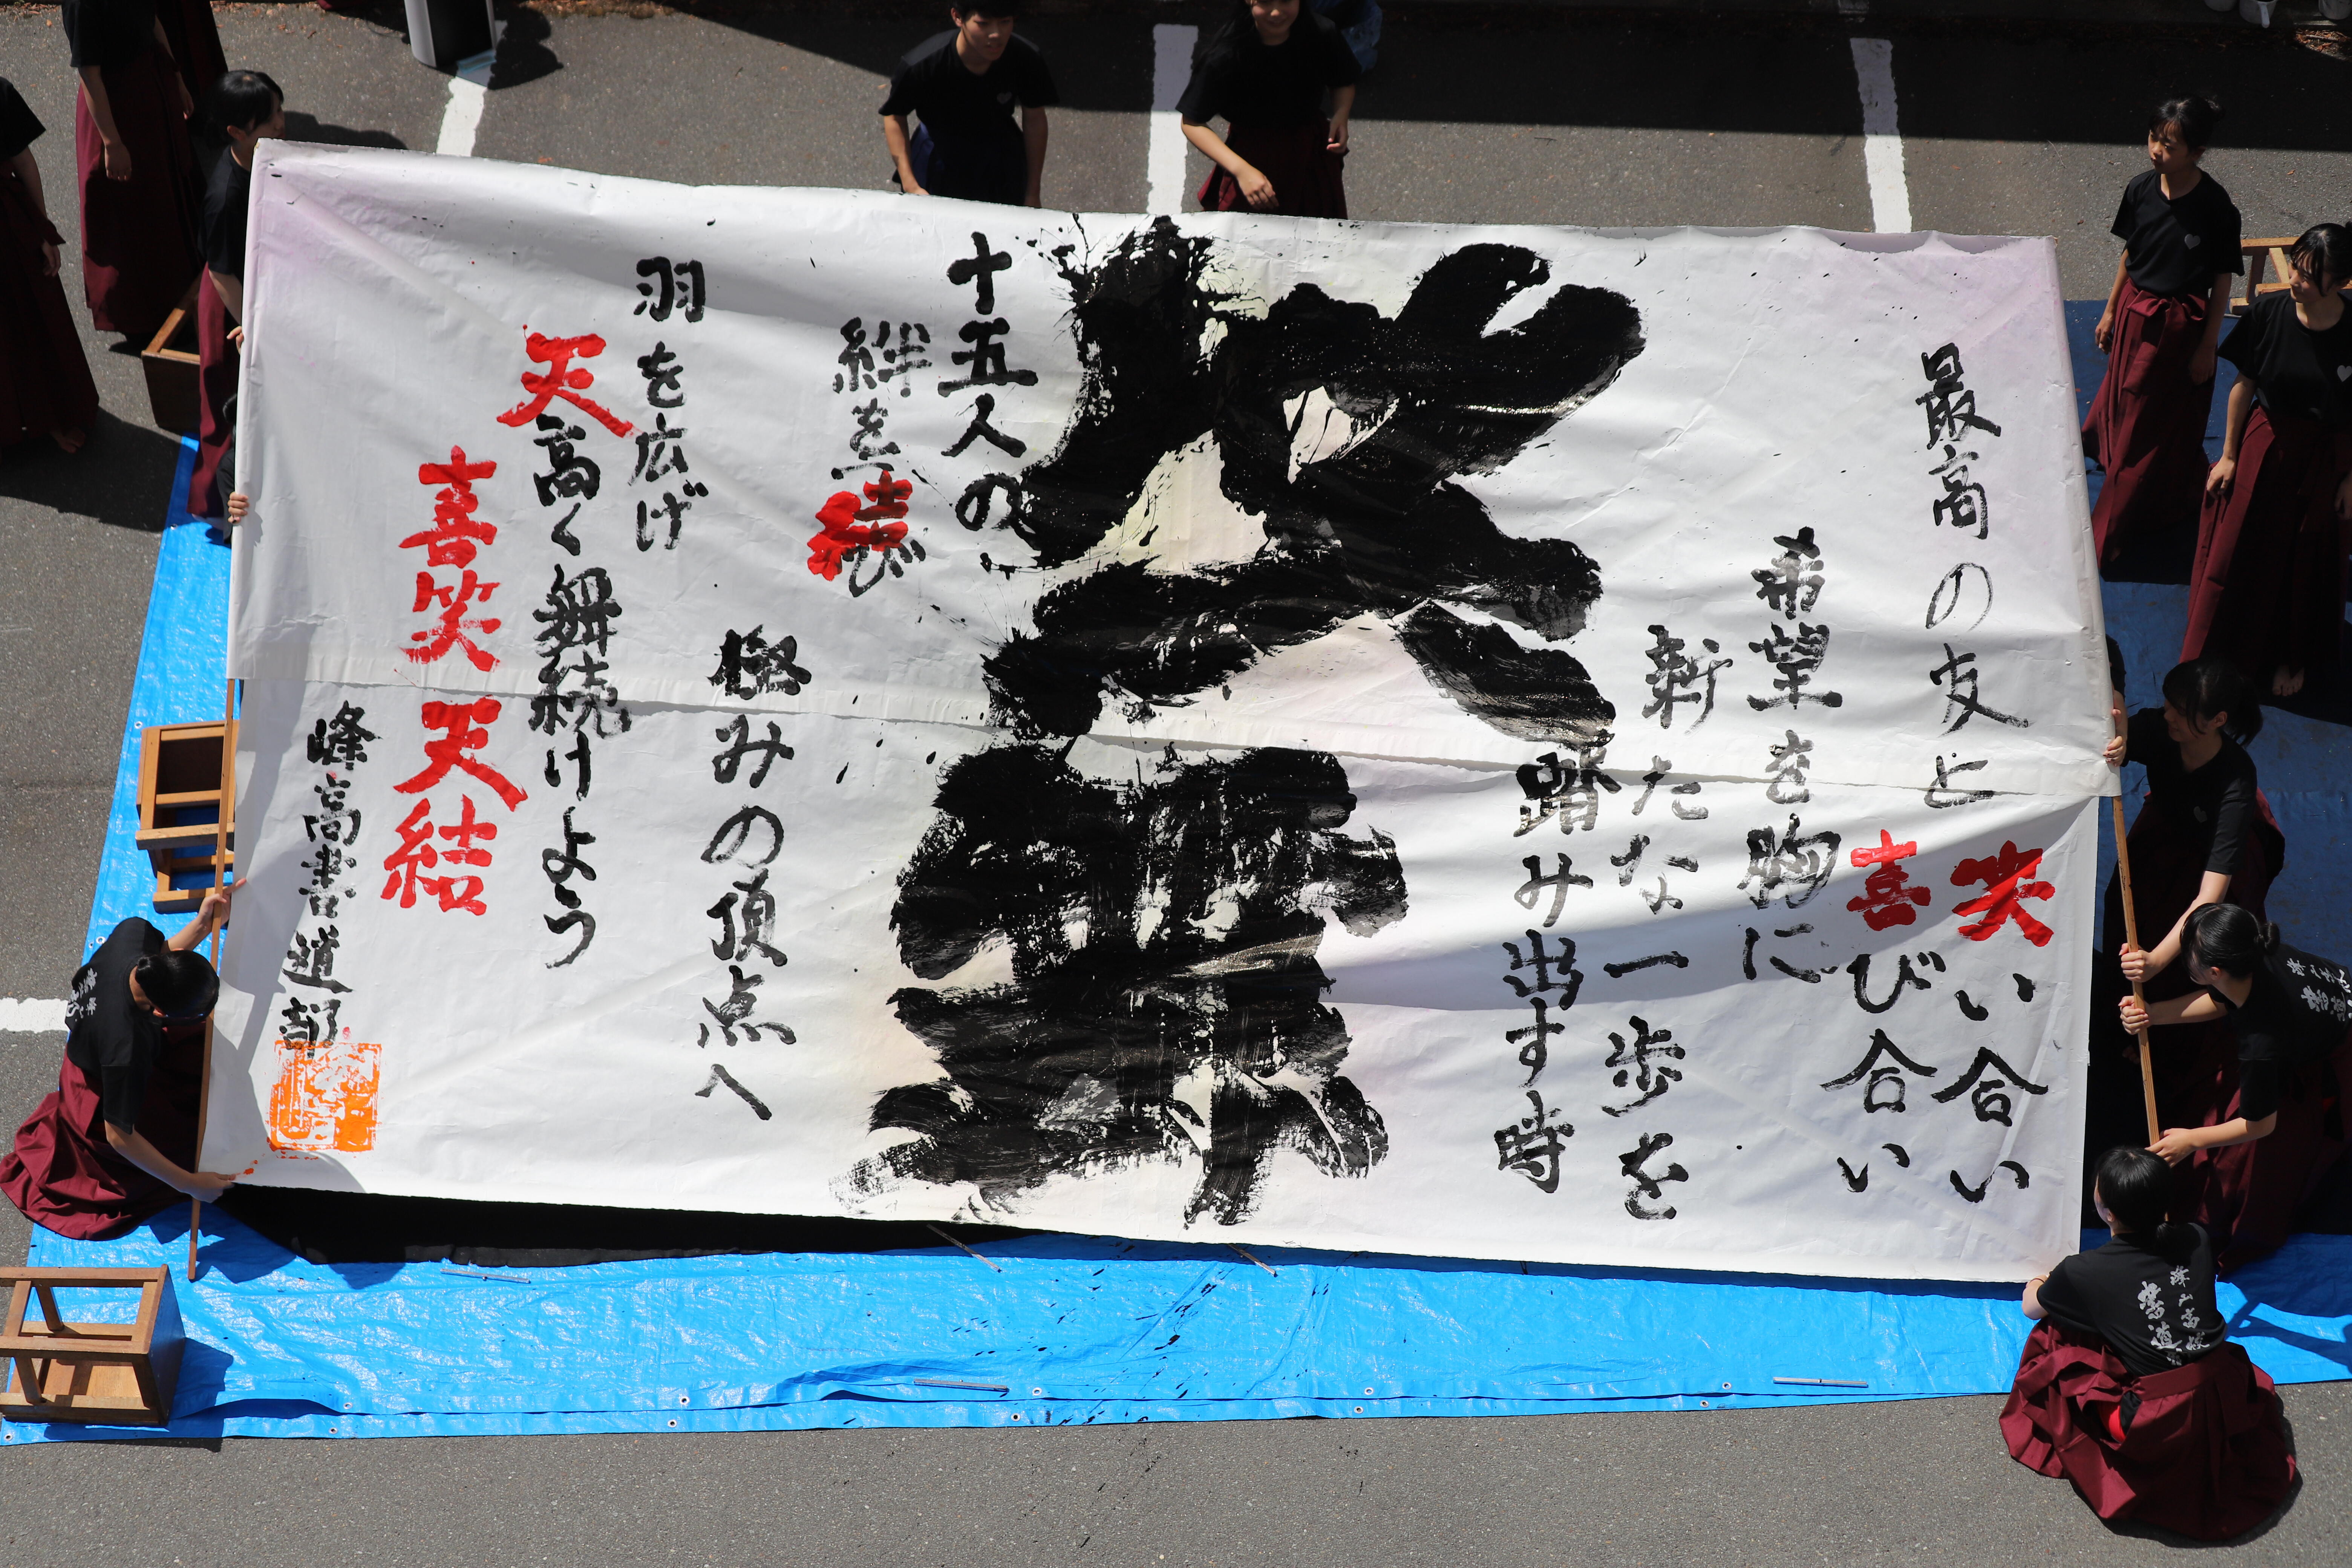 最高の友と
笑い合い
喜び合い
希望を胸に
新たな一歩を
踏み出す時
十五人の
絆を結び
極みの頂点へ
羽を広げ
天高く舞続けよう
喜笑天結
峰高書道部
峰山高校
書道